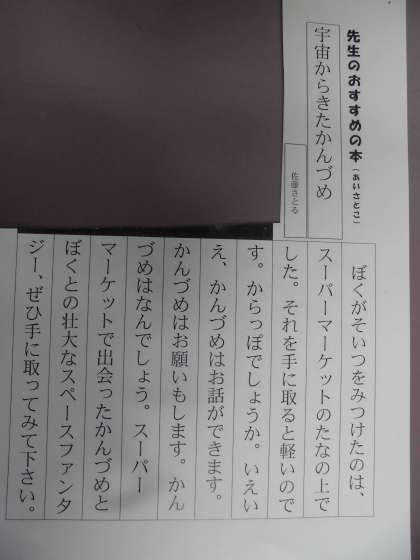 先生のおすすめの本（あいさとこ）
宇宙からきたかんづめ
佐藤さとる
ぼくがそいつをみつけたのは、
スーパーマーケットのたなの上で
した。それを手に取ると軽いので
す。からっぽでしょうか。いえい
え、かんづめはお話ができます。
かんづめはお願いもします。かん
づめはなんでしょう。スーパー
マーケットで出会ったかんづめと
ぼくとの壮大なスペースファンタ
ジー、ぜひ手に取ってみて下さい。